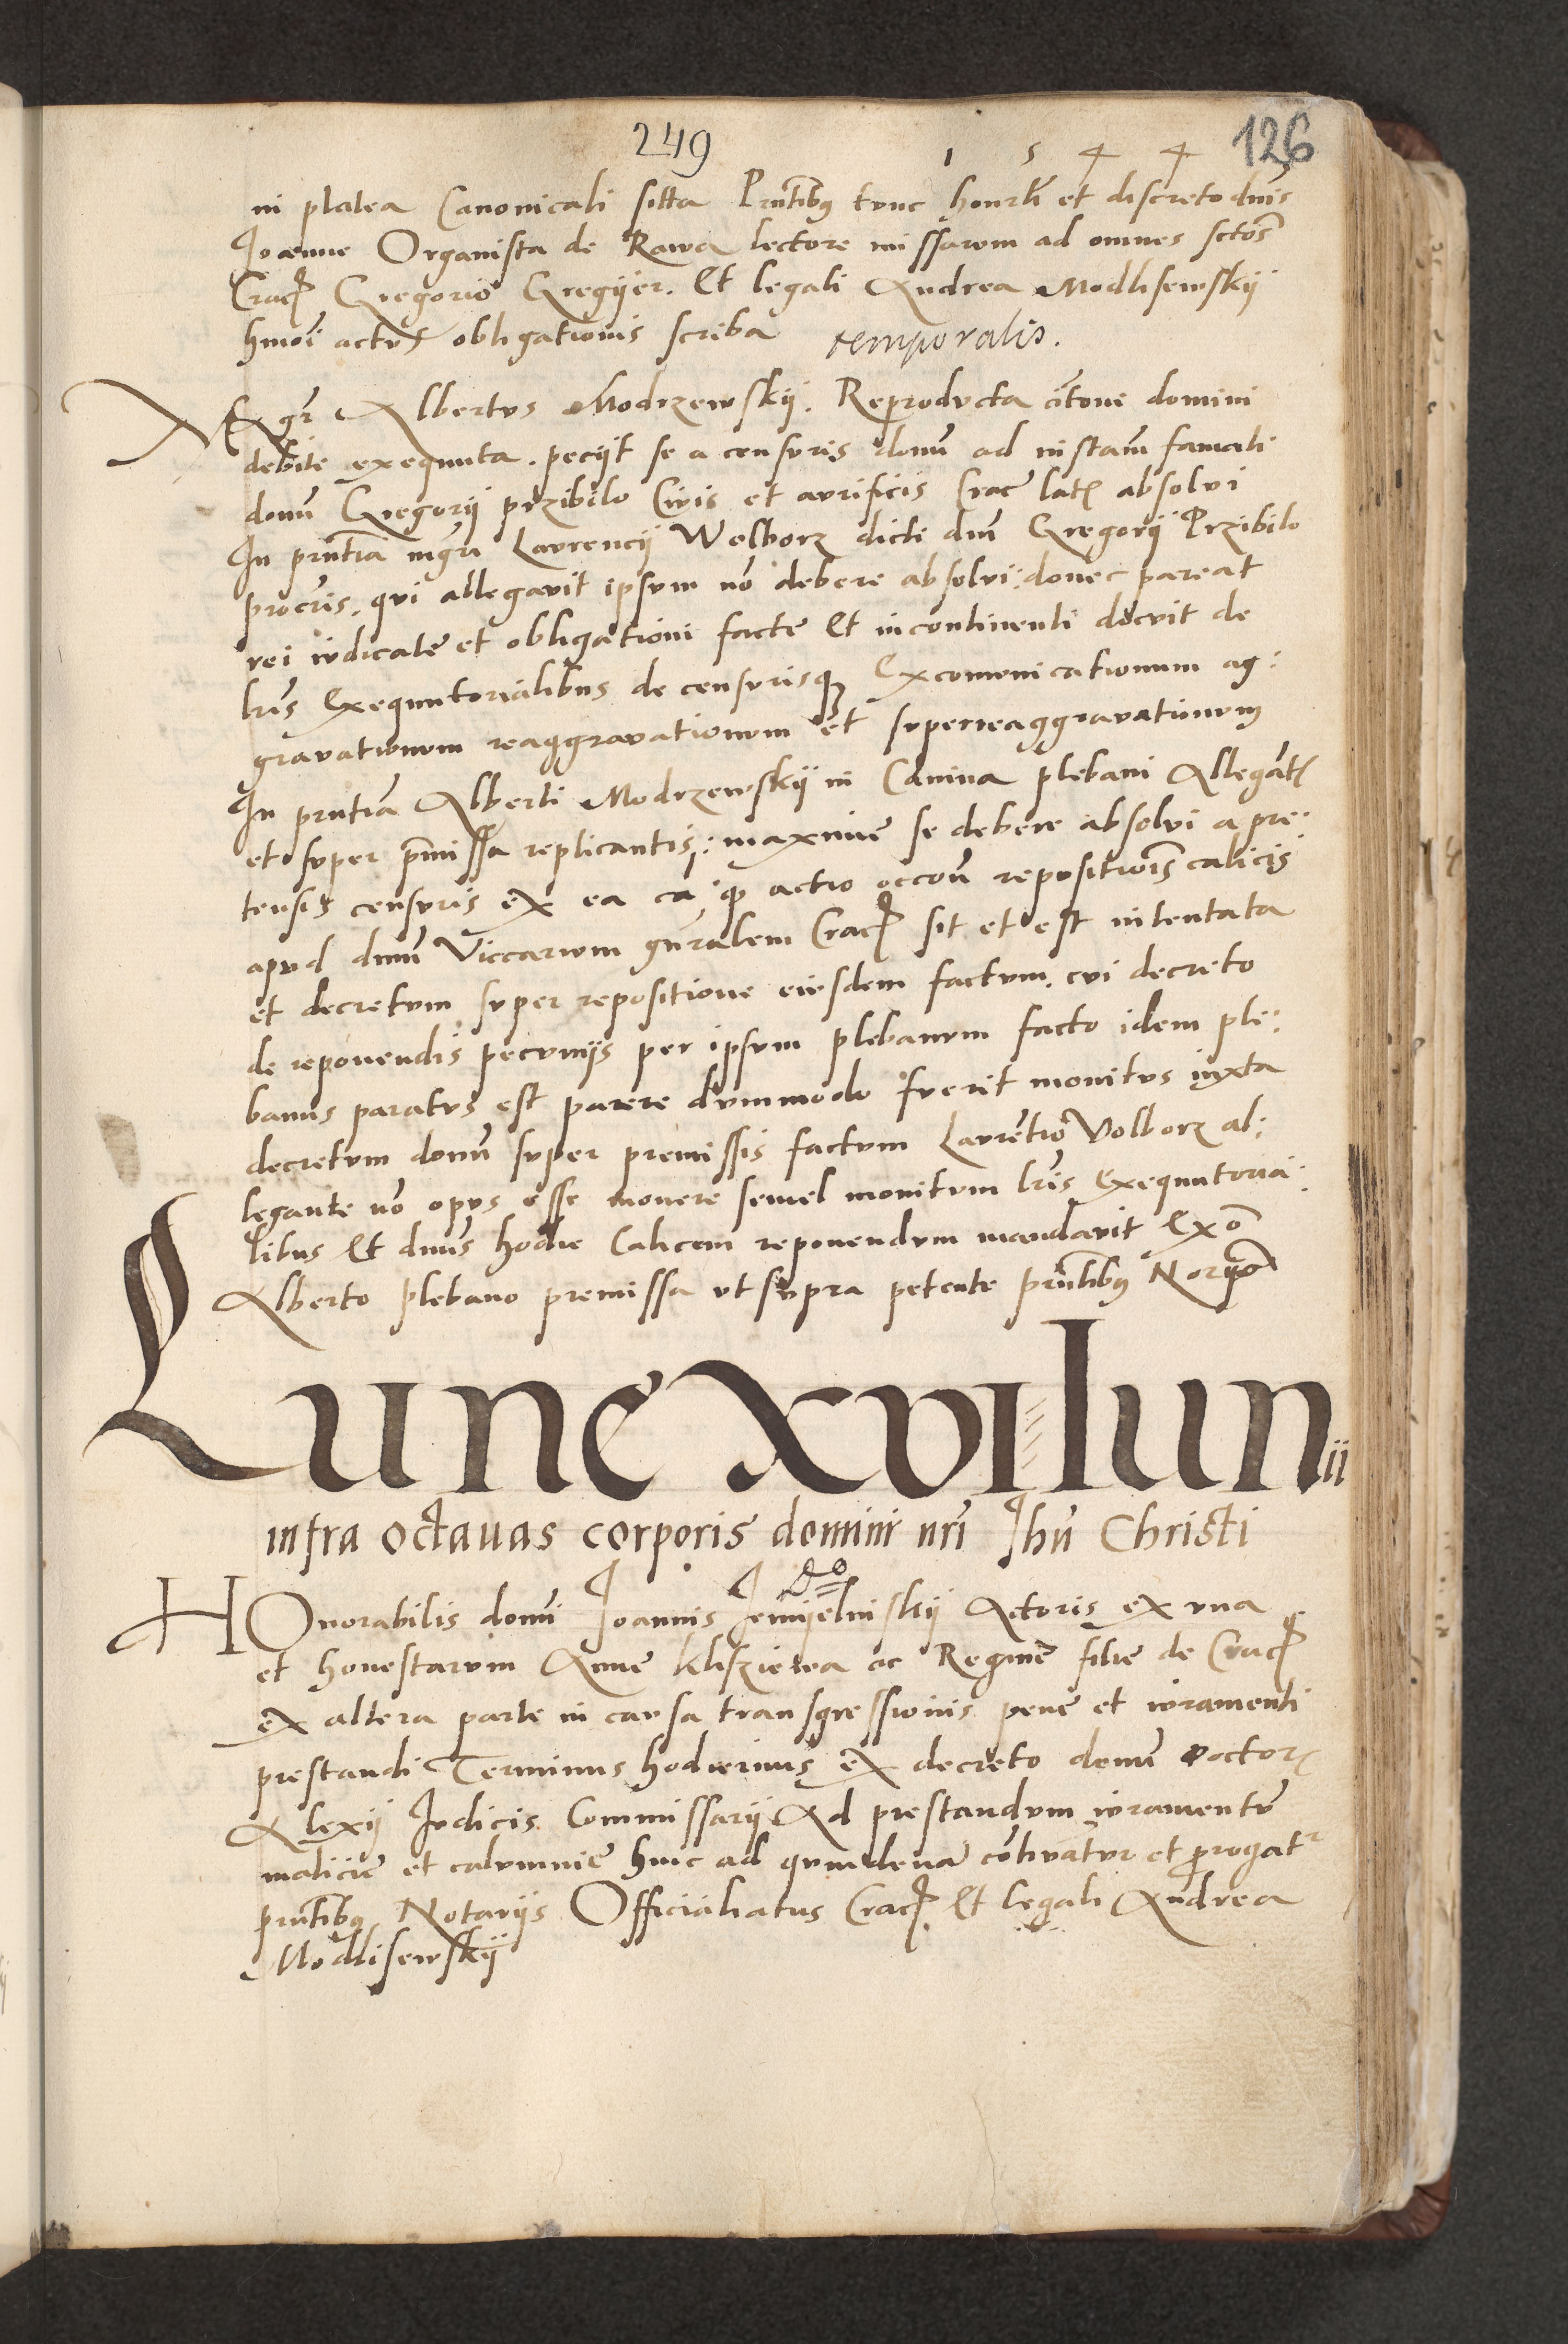 249
126
1 5 4 4
in platea Canonicali sitta Pñtibus tunc honorli et discreto dnis
Ioanne Organista de Rawa lectore missarum ad omnes sctos
Crac Gregorio Gregyer. Et legali Andrea Modlisewskÿ
hmoi actus obligationis scriba temporalis.
Mgr Albertus Modrzewskÿ. Reproducta citone domini
debite exequuta. peciit se a censuris donu ad instam famati
donu Gregorÿ przibilo Civis et aurificis Crac lat absolvi
In pñtia mgri Laurencÿ Wolborz dicti dni Gregorÿ Przibilo
procris. qui allegavit ipsum no debere absolvi: donec pareat
rei iudicate et obligationi facte Et incontinenti docuit de
lris Exequutorialibus de censurisque Excomunicationum ag:
gravationum reaggravationum et superreaggravationum
In pñtia Alberti Modrzewskÿ in Camina plebani Allegant
et super pmissa replicantis: maxime se debere absolvi a pre:
tensis censuris ex ea ca, q actio occoe repositiois calicis
apud dnum Viccarium gnralem Crac sit et est intentata
et decretum super repositione eiusdem factum. cui decreto
de reponendis pecuniis per ipsum plebanum facto idem ple:
banus paratus est parere dummodo fuerit monitus iuxta
decretum donu super premissis factum Laurentio Volborz al:
legante no opus esse monere semel monitum lris Exequutoria:
libus Et dnus hodie Calicem reponendum mandavit Ex
Alberto plebano premissa ut supra petente pñtibus Nor
Lune XVI Iunii
infra octauas corporis domini nri Ihu Christi
HOnorabilis domi Ioannis Iemÿelniskÿ Actoris ex una
et honestarum Anne kliszewa ac Regine filie de Crac
ex altera parte in causa transgressionis pene et iuramenti
prestandi Terminus hodiernus ex decreto donu doctor
Alexÿ Iudicis Commissarÿ Ad prestandum iuramentu
malicie et calumnie hinc ad quindena cotinuatur et prorogatr
pñtibus Notariis Officialiatus Crac Et legali Andrea
Modlisewskÿ